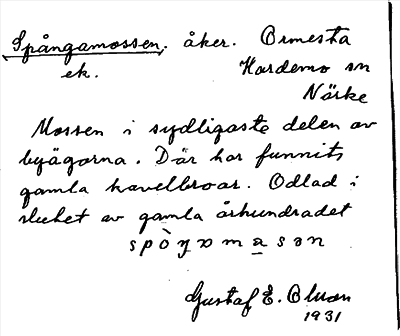 Spångamossen, åker. Ormesta
ek. Hardemo sn
Närke
Mossen i sydligaste delen av
byägorna. Där har funnits
gamla kavelbroar. Odlad i
slutet av gamla århundradet
spòŋxmasan
Gustaf E. Olsson
1931